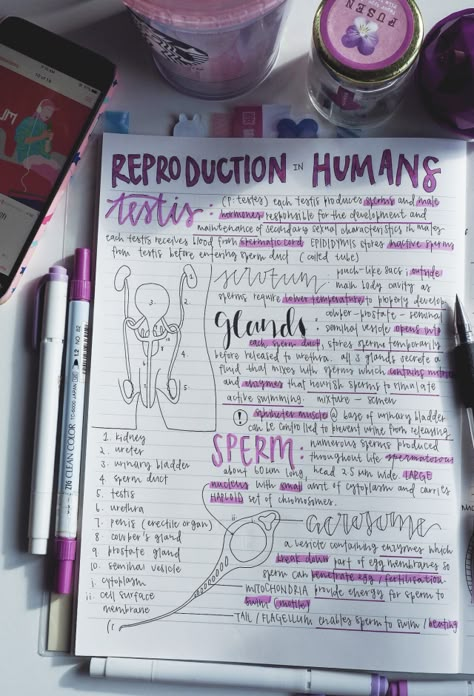 PUSEN
REPRODUCTION IN HUMANS
testis: (P: testes) each testis produces sperms and male
hormones responsible for the development and
maintenance of secondary sexual characteristics in males
each testis receives blood from spermatic cord EPIDIDYMIS stores inactive sperms
from testis before entering sperm duct (coiled tube)
scrotum pouch-like sacs, outside
main body cavity as
sperms require lower temperature to properly develop
glands: cowper - prostate - seminal
seminal vesicle opens into
each sperm duct, stores sperm temporarily
before released to urethra. all 3 glands secrete a
fluid that mixes with sperms which contains
and enzymes that nourish sperms to stimulate
active swimming. mixture - semen
! sphincter muscle @ base of urinary bladder
can be controlled to prevent urine from releasing
SPERM: numerous sperms produced
throughout life
about 60um long, head 2.5 um wide. LARGE
nucleus with small amt of cytoplasm and carries
HAPLOID set of chromosomes.
1. kidney
2. ureter
3. urinary bladder
4. sperm duct
5. testis
6. urethra
7. penis (erectile organ)
8. cowper's gland
9. prostate gland
10. seminal vesicle
i. cytoplasm
ii. cell surface
membrane
acrosome
a vesicle containing enzymes which
break down part of egg membranes so
sperm can penetrate egg / fertilisation
MITOCHONDRIA provide energy for sperm to
swim (motile)
TAIL / FLAGELLUM enables sperm to swim / beating
CLEAN COLOR